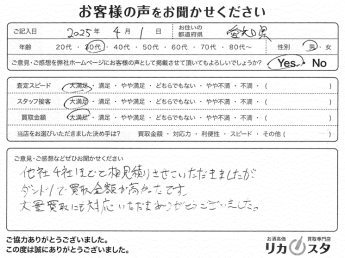 お客様の声をお聞かせください
ご記入日 2025年 4月 1日 お住いの都道府県 愛知県
年齢 20代・30代・40代・50代・60代・70代・80代〜 性別 男・女
ご意見・ご感想を弊社ホームページにお客様の声として掲載させて頂いてもよろしいでしょうか? Yes・No
査定スピード 大満足・満足・やや満足・どちらでもない・やや不満・不満・( )
スタッフ接客 大満足・満足・やや満足・どちらでもない・やや不満・不満・( )
買取金額 大満足・満足・やや満足・どちらでもない・やや不満・不満・( )
当店をお選びいただきました決め手は? 買取金額・対応力・利便性・スピード・その他( )
ご意見・ご感想などぜひお聞かせください
他社4社ほどと相見積りさせていただきましたが
ダントツで買取金額が高かったです。
大量買取にも対応いただきありがとうございました。
ご協力ありがとうございました。
この度は誠にありがとうございました。
お酒高価買取専門店
リカスタ